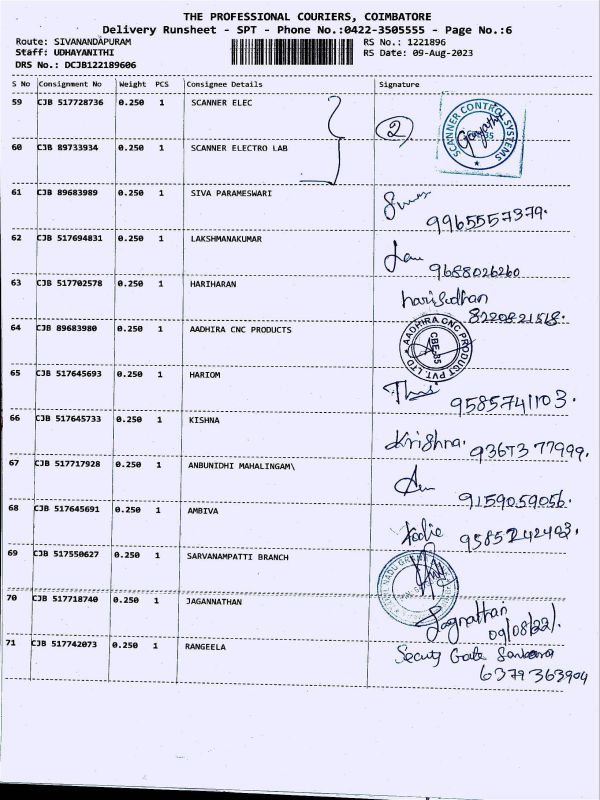 THE PROFESSIONAL COURIERS, COIMBATORE
Delivery Runsheet - SPT - Phone No.:0422-3505555 - Page No.:6
Route: SIVANANDAPURAM RS No.: 1221896
Staff: UDHAYANITHI RS Date: 09-Aug-2023
DRS No.: DCJB122189606
S No Consignment No Weight PCS Consignee Details Signature
59 CJB 517728736 0.250 1 SCANNER ELEC
2
SCANNER CONTROL SYSTEMS
60 CJB 89733934 0.250 1 SCANNER ELECTRO LAB
61 CJB 89683989 0.250 1 SIVA PARAMESWARI
9965557379.
62 CJB 517694831 0.250 1 LAKSHMANAKUMAR
9688026260
63 CJB 517702578 0.250 1 HARIHARAN
harisudhan
64 CJB 89683980 0.250 1 AADHIRA CNC PRODUCTS
AADHIRA CNC PRODUCT PVT. LTD
CBE-35
65 CJB 517645693 0.250 1 HARIOM
9585741103.
66 CJB 517645733 0.250 1 KISHNA
Krishna. 9367377999.
67 CJB 517717928 0.250 1 ANBUNIDHI MAHALINGAM\
9159059056.
68 CJB 517645691 0.250 1 AMBIVA
69 CJB 517550627 0.250 1 SARVANAMPATTI BRANCH
70 CJB 517718740 0.250 1 JAGANNATHAN
Jagnathan
09/08/22/.
71 CJB 517742073 0.250 1 RANGEELA
6379363904